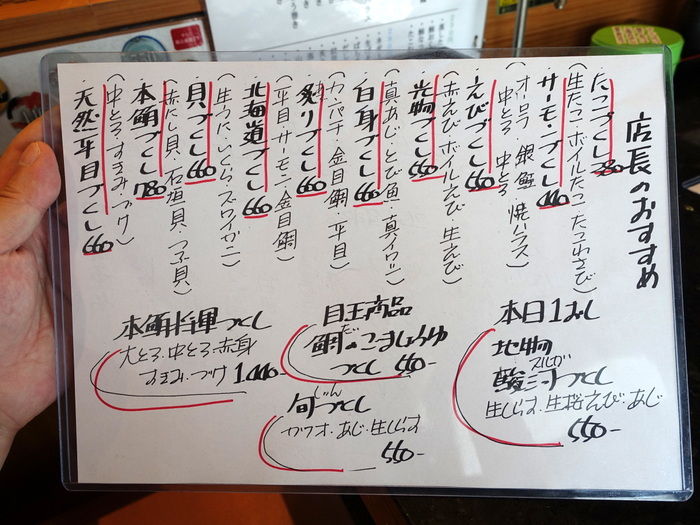 店長のおすすめ
・たこづくし 380
(生たこ・ボイルたこ・たこわさび)
・サーモンづくし
(オーロラ 銀鮭 焼ハラス
中とろ 中とろ
・えびづくし 550
(赤えび・ボイルえび 生えび)
・光物づくし 550
(真あじ・とび魚・真イワシ)
・白身づくし 660
(カンパチ・金目鯛・平目)
・炙りづくし 660
(平目・サーモン・金目鯛)
・北海道づくし 660
(生うに・いくら・ズワイガニ)
・貝づくし 660
(赤にし貝・石垣貝・つぶ貝)
・本鮪づくし 780
(中とろ・すきみ・づけ)
・天然平目づくし 660
本日1おし
地物
駿河づくし
スルガ
生しらす・生桜えび・あじ
550-
目玉商品
鯛のごましょうゆ
だ
づくし 550-
旬づくし
じゅん
カツオ・あじ・生しらす
550-
本鮪将軍づくし
大とろ・中とろ・赤身
すきみ・づけ